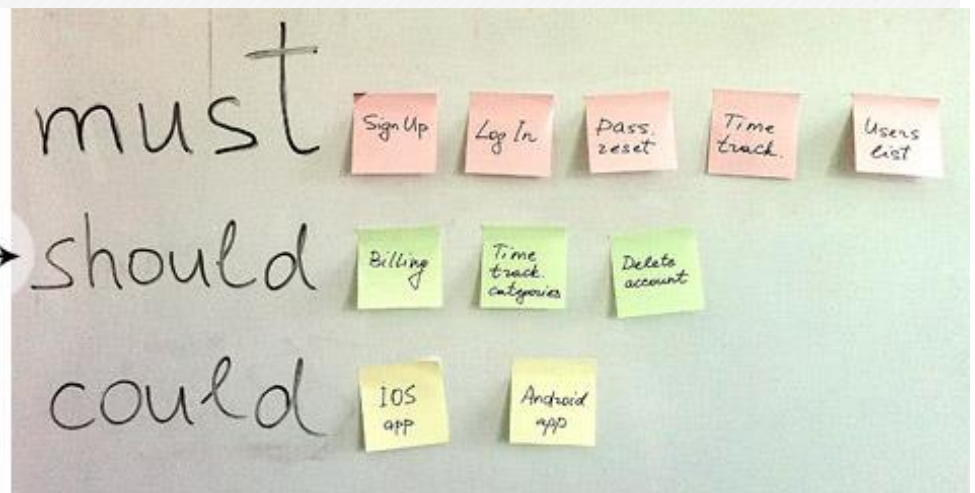 must
Sign Up
Log In
pass.
reset
Time
track.
Users
list
should
Billing
Time
track.
categories
Delete
account
could
IOS
app
Android
app